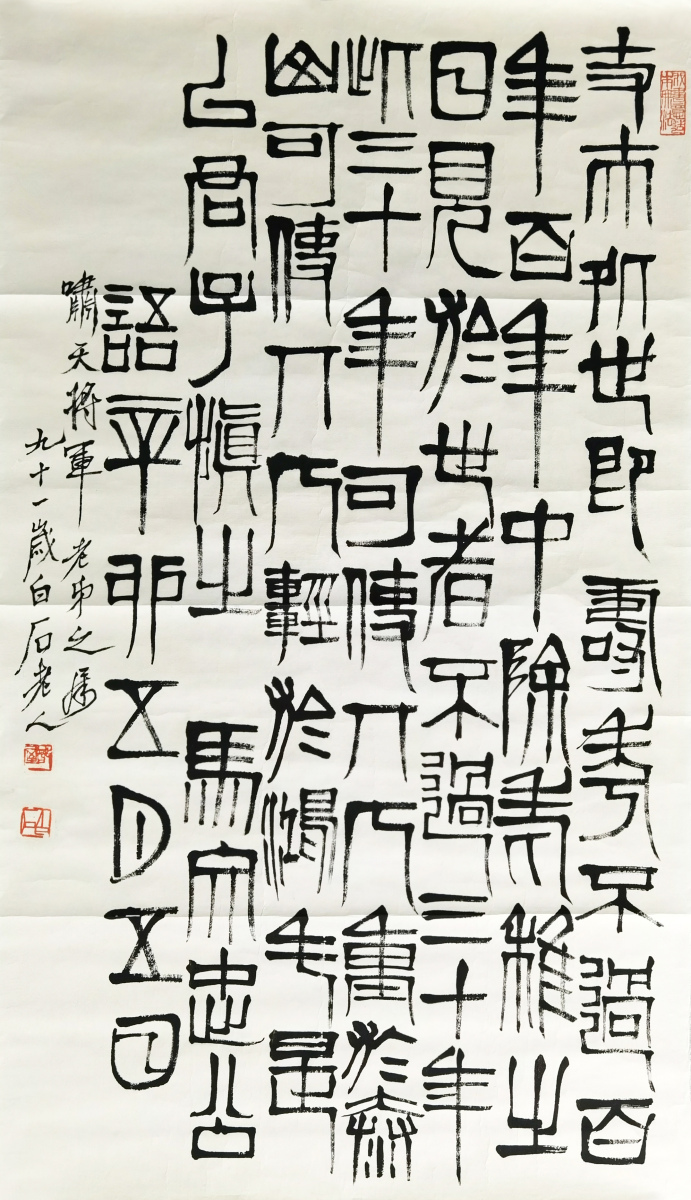 世即壽考不過百
年百年中除老稚之
日見於世者不過三十年
此三十年可使人重於泰
山可使人輕於鴻毛是
以君子慎之馬文忠公
語辛卯五月五日
嘯天將軍老弟之屬
九十一歲白石老人